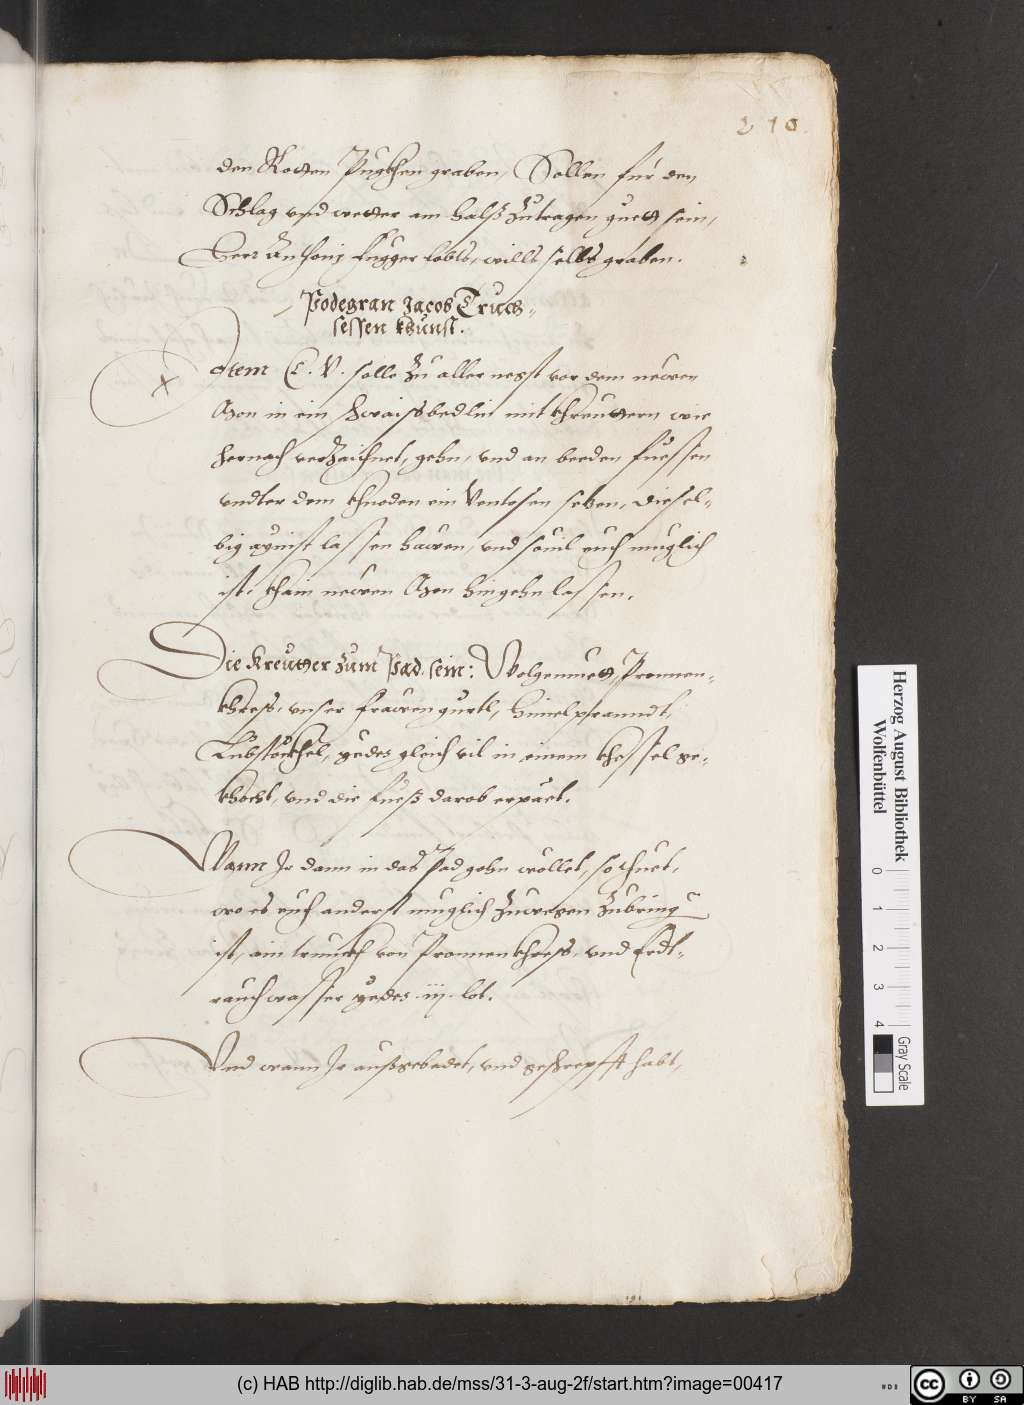 210.
den Rotten Pugkhen graben, Sollen für den
Schlag vnd wetter am halß zutragen guett sein,
Herr Anthonj Fugger lobts, wills selbs graben.
Podegran Jacob Truch-
sessen khunst.
Item E. V. solle zu aller negst vor dem newen
Mon in ein schwaissbedlin mit khreuttern wie
hernach verzaichnet, gehn, vnd an beeden fuessen
vndter dem khnoden ein Ventosen setzen, diesel-
big aginst lassen hawen, vnd souil euch muglich
ist, khain newen Mon hingehn lassen.
Die Kreutter zum Pad sein: Wolgemuett, Pronnen-
khress, vnser frawen gurtl, himelpranndt,
Lubstöckhel, yedes gleich vil in einem khessel ge-
khocht, vnd die fueß darob erpaet.
Wann Ir dann in das Pad gehn wöllet, so thuet,
wo es euch anderst muglich zuwegen zubring
ist, ain trunckh von Pronnenkhress, vnd Erdt-
rauch wasser yedes .iij. lot.
Vnd wann Ir außgebadet, vnd geschrepfft habt,
Herzog August Bibliothek
Wolfenbüttel
0 1 2 3 4
Gray Scale
(c) HAB http://diglib.hab.de/mss/31-3-aug-2f/start.htm?image=00417
cc BY SA